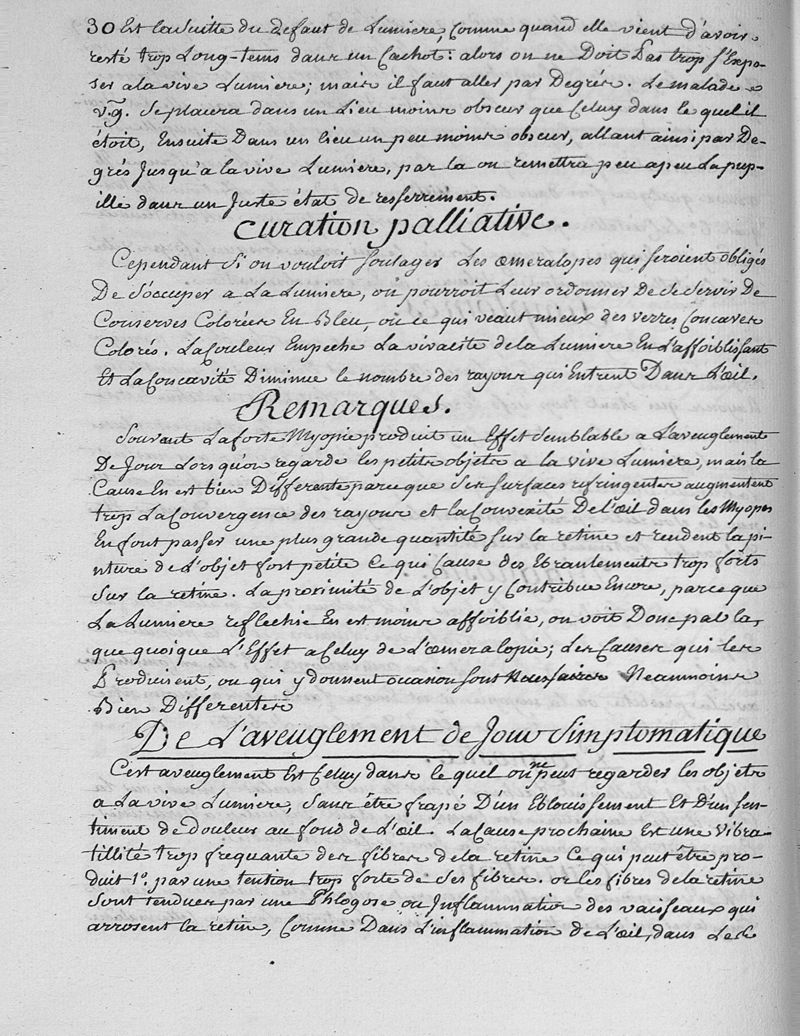 30 Est la Suitte du defaut de Lumiere, Comme quand elle vient d'avoir
resté trop Long-tems dans un Cachot: alors on ne Doit Pas trop s'Expo-
ser a la vive Lumiere; mais il faut aller par Degrés. Le malade
v.g. Se placera dans un Lieu moins obscur que Celuy dans le quel il
étoit, Ensuite Dans un lieu un peu moins obscur, allant ainsi par De-
grés Jusqu'a la vive Lumiere, par la on remettra peu a peu La pup-
ille dans un Juste état de resserrement.
Curation palliative.
Cependant Si on vouloit soulager Les œmeralopes qui seroient obligés
De S'occuper a La Lumiere, on pourroit Leur ordonner de Se Servir De
Conserves Colorées En Bleu, ou ce qui veaut mieux des verres Concaves
Colorés. La Couleur Empeche La vivacité de la Lumiere En L'affoiblissant
Et La Concavité Diminue le nombre des rayons qui Entrent Dans L'œil.
Remarques.
Souvant La forte Myopie produit un Effet Semblable a L'aveuglement
De Jour Lorsqu'on regarde les petits objets a la vive Lumiere, mais la
Cause En est bien Differente parce que Ses Surfaces refringentes augmentent
trop La Convergence des rayons et la Convexité De L'œil dans les Myopes
En font passer une plus grande quantité sur la retine et rendent la pi-
nture de L'objet fort petite Ce qui Cause des Ebranlements trop forts
Sur la retine. La proximité de L'objet y Contribue Encore, parce que
La Lumiere reflechie En est moins affoiblie, on voit Donc pat la,
que quoique L'Effet a Celuy de L'œmeralopie; Les Causes qui les
Produisent, ou qui y donnent occasion sont Neanmoins
Bien Differentes
De L'aveuglement de Jour Simptomatique
C'est aveuglement Est Celuy dans le quel on ne peut regarder les objets
a La vive Lumiere, sans être frapé D'un Eblouissement Et D'un sen-
timent de Douleur au fond de L'œil. La Cause prochaine Est une Vibra-
tillité trop frequante des fibres de la retine Ce qui peut être pro-
duit 1º. par une tention trop forte de Ses fibres. or les fibres de la retine
Sont tendues par une Phlogose ou Inflammation des vaisseaux qui
arrosent la retine, Comme Dans L'inflammation de L'œil, dans Le